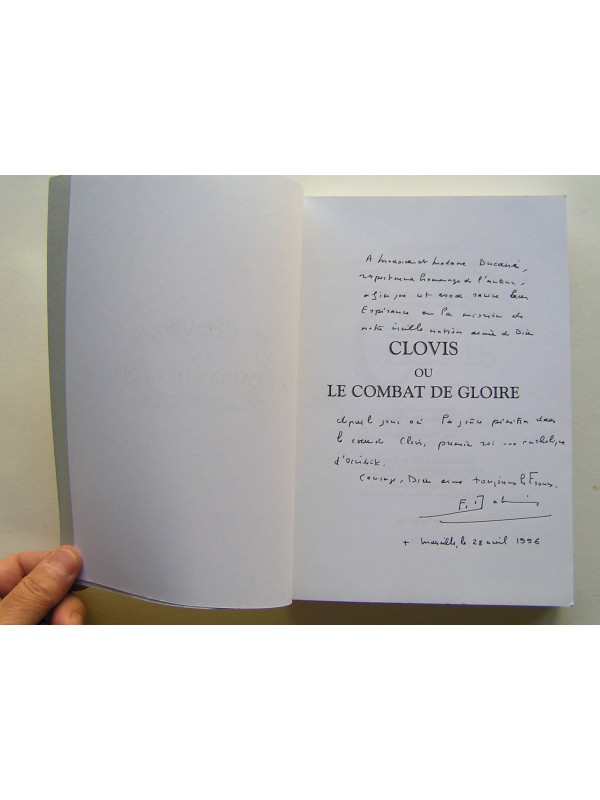 A Monsieur et Madame
respectueux hommage de l'auteur,
afin que cet essai leur
Espérance en la mission de
notre vieille nation aimée de Dieu
CLOVIS
OU
LE COMBAT DE GLOIRE
depuis le jour où la grâce pénétra dans
le cœur de Clovis, premier roi catholique
d'Occident.
Courage, Dieu aime toujours la France.
+ Marseille, le 28 avril 1996